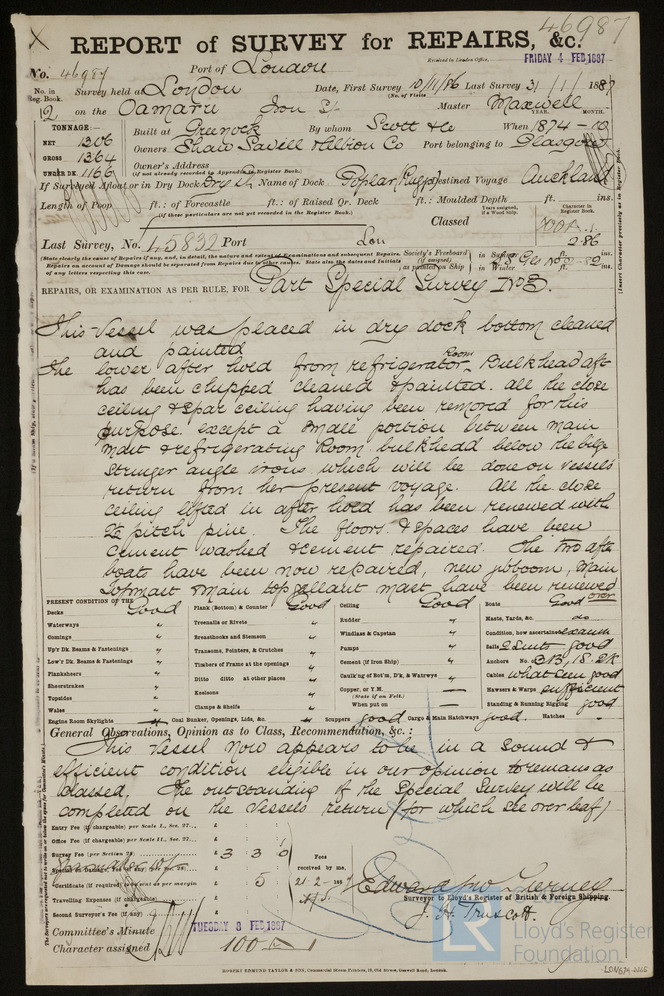 46987
REPORT of SURVEY for REPAIRS, &c.
Received in London Office, FRIDAY 4 FEB 1887
No. 46987 Port of London
No. in Reg. Book. Survey held at London Date, First Survey 10/11/86 Last Survey 31/1/1887
(No. of Visits)
12 on the Oamaru Iron Master Maxwell
TONNAGE:— Built at Greenock By whom Scott & Co When 1874 - 10
YEAR. MONTH.
NET 1306
GROSS 1364 Owners Shaw Savill & Albion Co Port belonging to Glasgow
UNDER DK. 1166 Owner's Address
(if not already recorded in Appendix to Register Book.)
If Surveyed Afloat or in Dry Dock Dry Name of Dock Poplar Destined Voyage Auckland
Length of Poop ft.: of Forecastle ft.: of Raised Qr. Deck ft.: Moulded Depth ft. ins.
(If these particulars are not yet recorded in the Register Book.)
Years assigned, if a Wood ship. Character in Register Book.
Classed 100A1
2.86
Last Survey, No. 45832 Port Lon
(State clearly the cause of Repairs if any, and, in detail, the nature and extent of Examinations and subsequent Repairs.
Repairs on account of Damage should be separated from Repairs due to other causes. State also the dates and Initials of any letters respecting this case.
Society's Freeboard (if assigned) as painted on Ship in Summer ft. ins.
in Winter ft. ins.
REPAIRS, OR EXAMINATION AS PER RULE, FOR Part Special Survey No 3.
(Insert Character precisely as in Register Book.
This Vessel was placed in dry dock bottom cleaned
and painted
The lower after hold from refrigerator Room Bulkhead aft
has been chipped cleaned & painted. all the close
ceiling & spar ceiling having been removed for this
purpose. except a small portion between main
mast & refrigerating Room bulkhead below the bilge
stringer angle irons which will be done on vessels
return from her present voyage. All the close
ceiling lifted in after hold has been renewed with
2½ pitch pine. The floors & spaces have been
cement washed & cement repaired. The two aft
boats have been now repaired, new jibboom, Main
topmast & main topgallant mast have been renewed
over
PRESENT CONDITION OF THE
Decks Good Plank (Bottom) & Counter Good Ceiling Good Boats Good
Waterways " Treenails or Rivets " Rudder " Masts, Yards, &c. do
Comings " Breasthooks and Stemson " Windlass & Capstan " Condition, how ascertained exam
Up'r Dk. Beams & Fastenings " Transoms, Pointers, & Crutches " Pumps " Sails 2 Suits good
Low'r Dk. Beams & Fastenings " Timbers of Frame at the openings " Cement (if Iron Ship) " Anchors No. 3B, 1S. 2K
Plankshears " Ditto ditto at other places " Caulk'ng of Bot'm, D'k, & Watrwys " Cables what seen good
Sheerstrakes " Keelsons " Copper, or Y.M. — Hawsers & Warps sufficient
(State if on Felt.)
Topsides " Clamps & Shelfs " When put on — Standing & Running Rigging good
Wales "
Engine Room Skylights Coal Bunker, Openings, Lids, &c. " Scuppers good Cargo & Main Hatchways good. Hatches
General Observations, Opinion as to Class, Recommendation, &c. :—
This Vessel now appears to be in a sound &
efficient condition eligible in our opinion to remain as
classed. The outstanding of the Special Survey will be
completed on the Vessels return (for which see over leaf)
Entry Fee (if chargeable) per Scale I., Sec. 27... £
Office Fee (if chargeable) per Scale II., Sec. 27... £
Survey Fee (per Section 28) £ 3 3 0
Certificate (if required) to be sent as per margin 5
Travelling Expenses (if chargeable) £
Second Surveyor's Fee (if any) £
Fees received by me,
21.2.1887
Surveyor to Lloyd's Register of British & Foreign Shipping.
J. H. Truscott.
Committee's Minute TUESDAY 8 FEB 1887
Character assigned 100 A
ROBERT EDMUND TAYLOR & SON, Commercial Steam Printers, 19, Old Street, Goswell Road, London.
LR Lloyd's Register Foundation